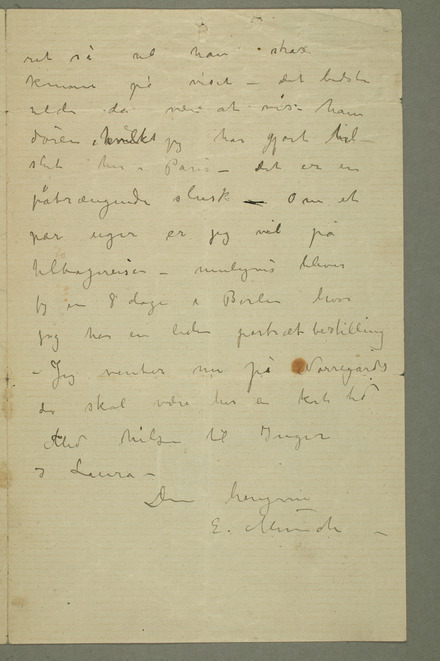 ret så vil han strax
komme på visit – det bedste
vilde da være at vise ham
døren, hvilket jeg har gjort til-
slut her i Paris – det er en
påtrængende slusk – Om et
par uger er jeg vel på
tilbagereisen – muligvis bliver
jeg en 8 dage i Berlin hvor
jeg har en liden portrætbestilling
– Jeg venter nu på Nørregårds
der skal være her en kort tid
Med hilsen til Inger
og Laura –
Din hengivne
E. Munch –